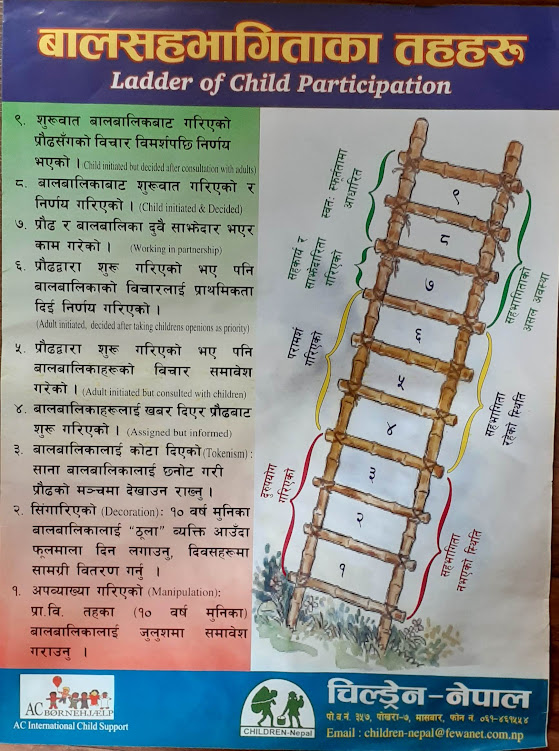 बालसहभागिताका तहहरु
Ladder of Child Participation
९. शुरूवात बालबालिकबाट गरिएको
प्रौढसँगको विचार विमर्शपछि निर्णय
भएको । (Child initiated but decided after consultation with adults)
८. बालबालिकाबाट शुरूवात गरिएको र
निर्णय गरिएको । (Child initiated & Decided)
७. प्रौढ र बालबालिका दुवै साझेदार भएर
काम गरेको । (Working in partnership)
६. प्रौढद्वारा शुरू गरिएको भए पनि
बालबालिकाको विचारलाई प्राथमिकता
दिई निर्णय गरिएको ।
(Adult initiated, decided after taking childrens openions as priority)
५. प्रौढद्वारा शुरू गरिएको भए पनि
बालबालिकाहरूको विचार समावेश
गरेको । (Adult initiated but consulted with children)
४. बालबालिकाहरूलाई खबर दिएर प्रौढबाट
शुरू गरिएको । (Assigned but informed)
३. बालबालिकालाई कोटा दिएको (Tokenism):
साना बालबालिकालाई छनोट गरी
प्रौढको मञ्चमा देखाउन राख्नु ।
२. सिंगारिएको (Decoration): १० वर्ष मुनिका
बालबालिकालाई "ठूला" व्यक्ति आउँदा
फूलमाला दिन लगाउनु, दिवसहरूमा
सामग्री वितरण गर्नु ।
१. अपव्याख्या गरिएको (Manipulation):
प्रा.वि. तहका (१० वर्ष मुनिका)
बालबालिकालाई जुलुशमा समावेश
गराउनु ।
स्वतः स्फूर्ततामा
आधारित
सहकार्य र
साझेदारिता
गरिएको
परामर्श
गरिएको
दुरुपयोग
गरिएको
९
८
७
६
५
४
३
२
१
सहभागिताको
असल अवस्था
सहभागिता
रहेको स्थिति
सहभागिता
नभएको स्थिति
AC
BØRNEHJÆLP
AC International Child Support
CHILDREN-Nepal
चिल्ड्रेन-नेपाल
पो.ब.नं. ३५७, पोखरा-७, मासबार, फोन नं. ०६१-४६१५५४
Email : children-nepal@fewanet.com.np